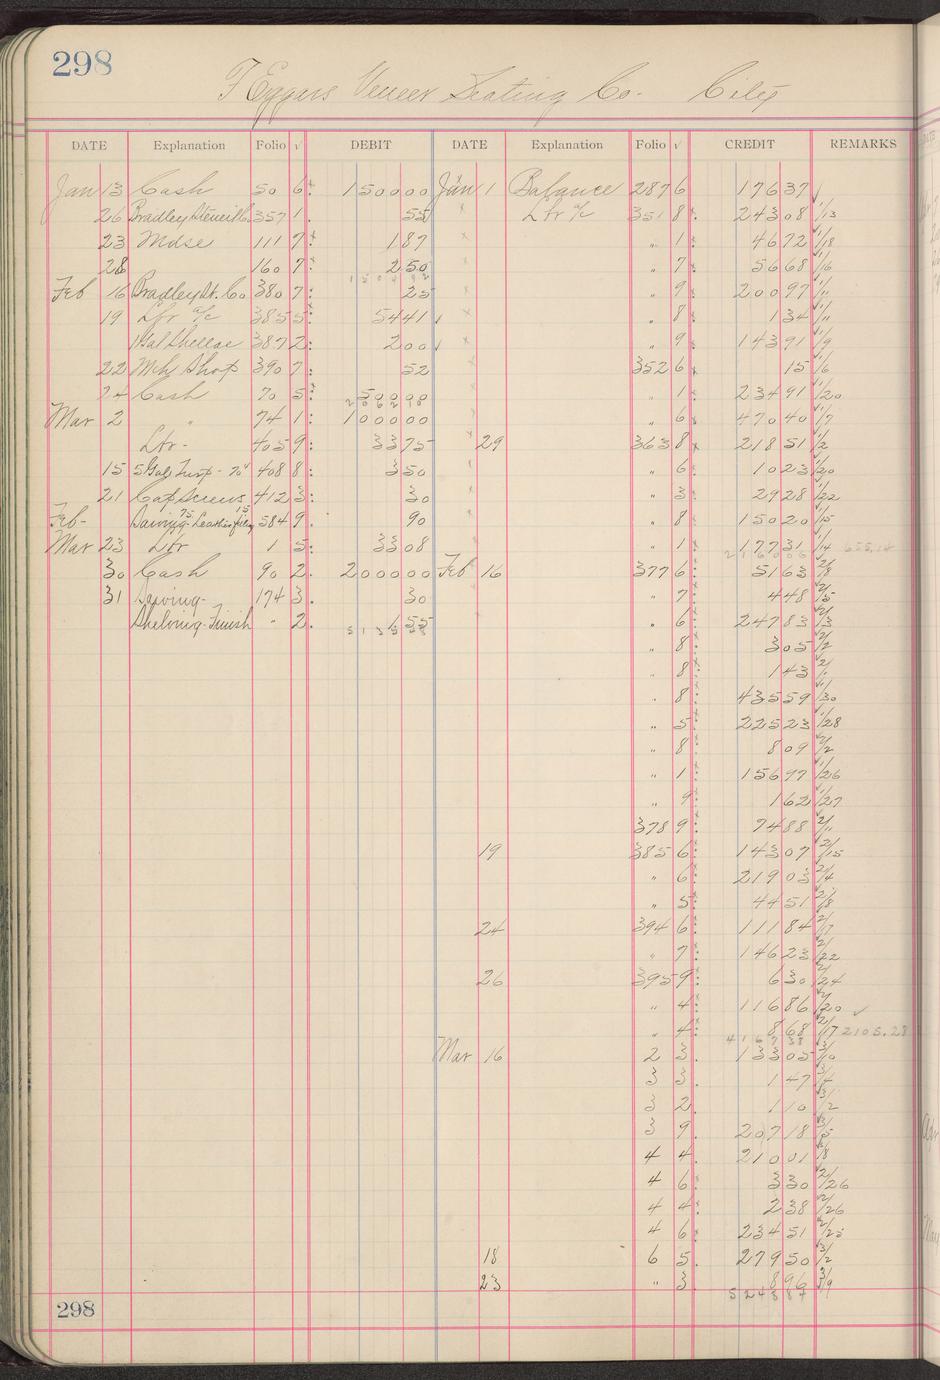 298
F Eggers Veneer Seating Co. City
DATE Explanation Folio √ DEBIT DATE Explanation Folio √ CREDIT REMARKS
Jan 13 Cash 50 6 150000 Jan 1 Balance 287 6 17637
26 Bradley Stencil Co. 357 1 55 Ltr a/c 351 8 24308 1/13
23 Mdse 111 7 187 " 1 4672 1/18
28 160 7 250 " 7 5668 1/6
150492
Feb 16 Bradley St. Co 380 7 25 " 9 20097 1/11
19 Ltr a/c 385 5 5441 " 8 134 1/11
1 Gal Shellac 387 2 200 " 9 14391 1/9
22 Mch Shop 390 7 52 352 6 15 1/6
24 Cash 70 5 50000 " 1 23491 1/20
206210
Mar 2 " 74 1 100000 " 6 47040 1/7
Ltr - 405 9 3375 29 363 8 21851 1/2
15 5 Gals Turp - 70¢ 408 8 350 " 6 1023 1/20
21 Cap Screws 412 3 30 " 3 2928 1/22
Feb - 584 9 90 " 8 15020 1/15
Mar 23 Ltr 1 5 3308 " 1 17731 1/14 655.14
216006
30 Cash 90 2 200000 Feb 16 377 6 5163 2/8
31 174 3 30 " 7 448 2/5
Shelving - Finish " 2 155 " 6 24783 2/3
" 8 305 2/2
" 8 143 2/1
" 8 43559 1/30
" 5 22523 1/28
" 8 809 2/2
" 1 15697 1/26
" 9 162 1/27
378 9 7488 2/11
19 385 6 14307 2/15
" 6 21903 2/4
" 5 4451 2/18
24 394 6 11184 2/17
" 7 14623 2/22
26 395 9 630 2/24
" 4 11686 2/20
" 4 868 2/17 2105.28
416738
Mar 16 2 3 13305 3/10
3 3 147 3/4
3 2 110 3/2
3 9 20718 3/5
4 4 21001 3/8
4 6 330 2/26
4 4 238 2/26
4 6 23451 2/25
18 6 5 27950 3/2
23 " 3 896 3/19
524884
298